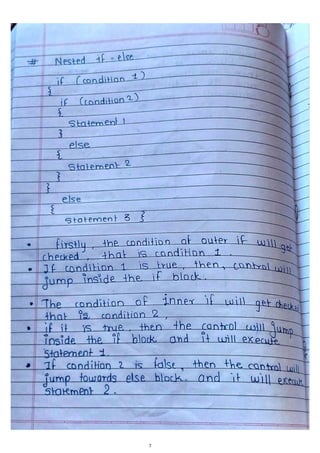 # Nested if - else
if (condition 1)
{
if (condition 2)
{
Statement 1
}
else
{
Statement 2
}
}
else
{
Statement 3 }
• firstly, the condition of outer if will get
checked, that is condition 1.
• If condition 1 is true, then, control will
jump inside the if block.
• The condition of inner if will get checked
that is condition 2,
• if it is true, then the control will jump
inside the if block and it will execute
Statement 1.
• If condition 2 is false, then the control will
jump towards else block. and it will execute
Statement 2.